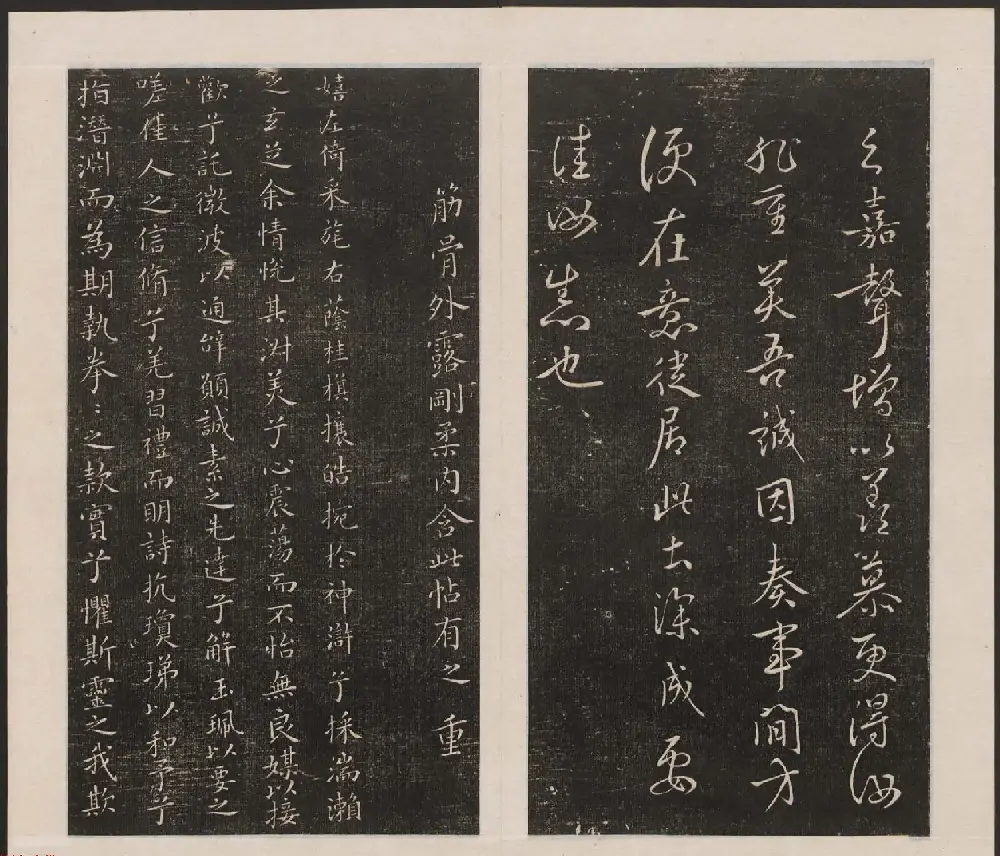 之嘉聲增以羨慕更得汝
非重美吾誠因奏事間方
便在意從居此去深成要
佳汝也
筋骨外露剛柔內含此帖有之 重
嬉左倚采旄右蔭桂棋攘皓捥於神滸兮採湍瀨
之玄芝余情悅其淑美兮心震蕩而不怡無良媒以接
歡兮託微波以通辝願誠素之先達兮解玉珮以要之
嗟佳人之信脩兮羌習禮而明詩抗瓊珶以和予兮
指潛淵而為期執拳〻之款實兮懼斯靈之我欺